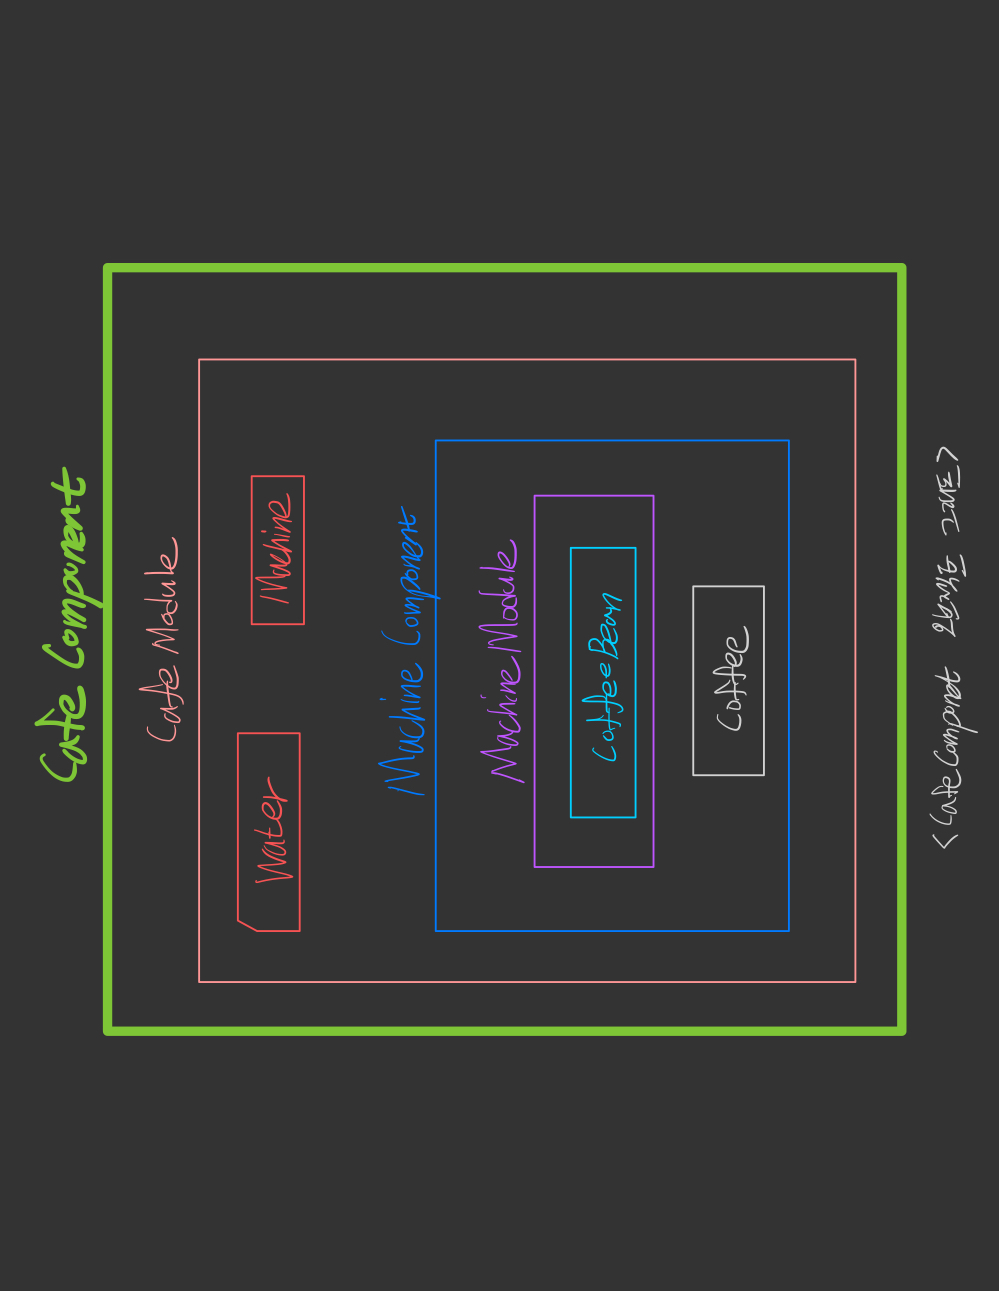 Cafe Component
Cafe Module
Water
Machine
Machine Component
Machine Module
CoffeeBean
Coffee
<CafeComponet 오브젝트 그래프>